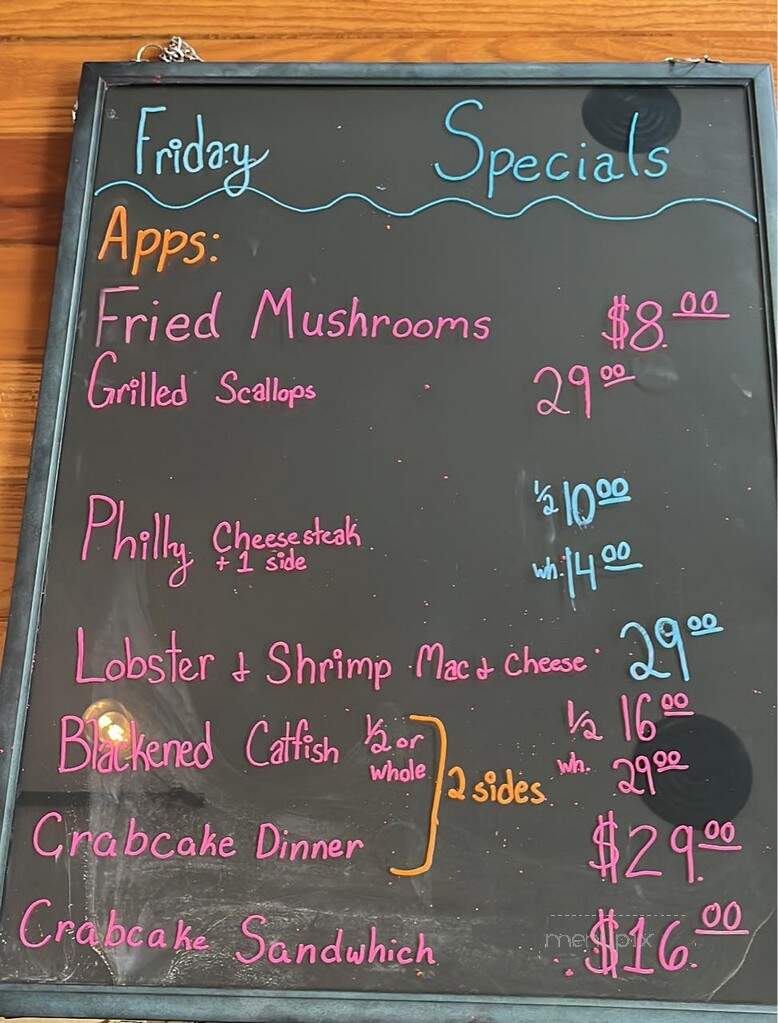 Friday Specials
Apps:
Fried Mushrooms $8.00
Grilled Scallops 29 00
Philly Cheesesteak ½ 10 00
+ 1 side wh. 14 00
Lobster & Shrimp Mac & Cheese 29 00
Blackened Catfish ½ or whole ½ 16 00
wh. 29 00
2 sides
Crabcake Dinner $29.00
Crabcake Sandwhich $16.00
menupix